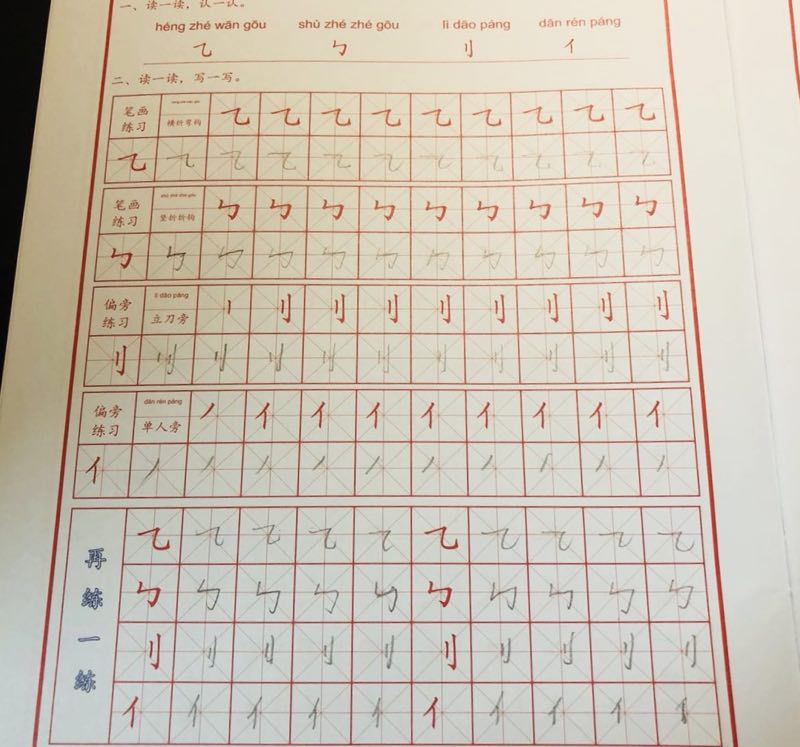 一、读一读，认一认。
héng zhé wān gōu shù zhé zhé gōu lì dāo páng dān rén páng
乙 ㄣ 刂 亻
二、读一读，写一写。
笔画练习 héng zhé wān gōu 横折弯钩 乙 乙 乙 乙 乙 乙 乙 乙 乙
乙 乙 乙 乙 乙 乙 乙 乙 乙 乙 乙
笔画练习 shù zhé zhé gōu 竖折折钩 ㄣ ㄣ ㄣ ㄣ ㄣ ㄣ ㄣ ㄣ ㄣ
ㄣ ㄣ ㄣ ㄣ ㄣ ㄣ ㄣ ㄣ ㄣ ㄣ ㄣ
偏旁练习 lì dāo páng 立刀旁 丨 刂 刂 刂 刂 刂 刂 刂 刂
刂 刂 刂 刂 刂 刂 刂 刂 刂 刂 刂
偏旁练习 dān rén páng 单人旁 丿 亻 亻 亻 亻 亻 亻 亻 亻
亻 亻 亻 亻 亻 亻 亻 亻 亻 亻 亻
再练一练
乙 乙 乙 乙 乙 乙 乙 乙 乙 乙
ㄣ ㄣ ㄣ ㄣ ㄣ ㄣ ㄣ ㄣ ㄣ ㄣ
刂 刂 刂 刂 刂 刂 刂 刂 刂 刂
亻 亻 亻 亻 亻 亻 亻 亻 亻 亻